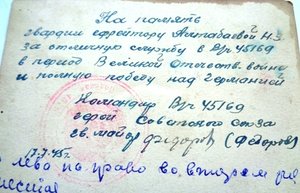 На память
гвардии ефрейтору Ахтабаевой Н.З.
за отличную службу в В/ч 45169
в период Великой Отечеств. войне
и полную победу над Германией
Командир В/ч 45169
герой Советского Союза
гв. майор Федоров (Федоров)
7.45г.
лево на право во, втаром ря